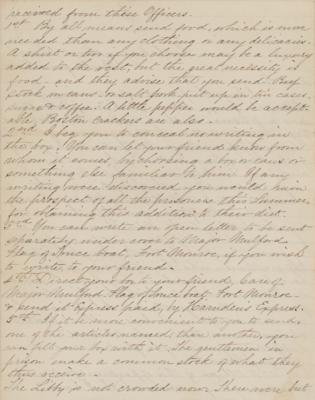 received from these Officers.
1st By all means send food, which is more
needed than any clothing or any delicacies.
A shirt or two if you choose may be a luxury
added to the rest, but the great necessity is
food - and they advise that you send Beef
stock in cans - or salt pork put up in tin cases,
sugar & coffee. A little pepper would be accept-
able, Boston crackers are also.
2nd I beg you to conceal no writing in
the box. You can let your friend know from
whom it comes, by choosing a box or cans or
something else familiar to him. If any
writing were discovered you would ruin
the prospect of all the prisoners this Summer
for obtaining this addition to their diet.
3rd You can write an open letter to be sent
separately under cover to Major Mulford
Flag of Truce boat, Fort Monroe, if you wish
to write, to your friend.
4th Direct your box to your friend, Care of
Major Mulford Flag of Truce boat, Fort Monroe -
& send it Express paid, by Harndens Express.
5th If it be more convenient to you to send
one of the articles named, than another, you
can fill one box with it. The gentlemen in
prison make a common stock of what they
thus receive.
The Libby is not crowded now. There were but